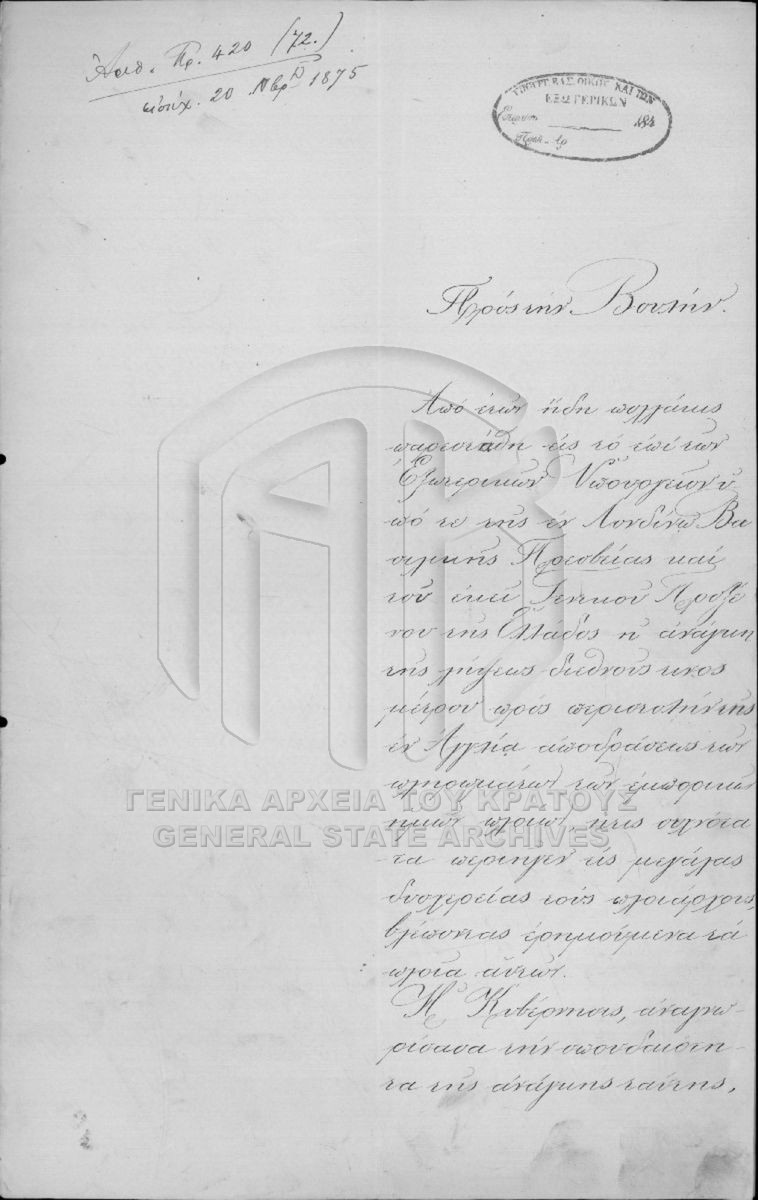 Αριθ. Πρ. 420 (72.)
εἰσήχ. 20 Νβρ 1875
ΥΠΟΥΡΓ. ΒΑΣ. ΟΙΚΟΥ ΚΑΙ ΤΩΝ
ΕΞΩΤΕΡΙΚΩΝ
188
Πρὸς τὴν Βουλήν.
Ἀπὸ ἐτῶν ἤδη πολλάκις
παρεστάθη εἰς τὸ ἐπὶ τῶν
Ἐξωτερικῶν Ὑπουργεῖον ὑ
πό τε τῆς ἐν Λονδίνῳ Βα
σιλικῆς Πρεσβείας καὶ
τοῦ ἐκεῖ Γενικοῦ Προξέ
νου τῆς Ἑλλάδος ἡ ἀνάγκη
τῆς λήψεως διεθνοῦς τινος
μέτρου πρὸς περιστολὴν τῆς
ἐν Ἀγγλίᾳ ἀποδράσεως τῶν
πληρωμάτων τῶν ἐμπορικῶν
ἡμῶν πλοίων, ἥτις συχνότα
τα περιῆγεν εἰς μεγάλας
δυσχερείας τοὺς πλοιάρχους,
βλέποντας ἐρημούμενα τὰ
πλοῖα αὐτῶν.
Ἡ Κυβέρνησις, ἀναγνω
ρίσασα τὴν σπουδαιότη-
τα τῆς ἀνάγκης ταύτης,
ΓΕΝΙΚΑ ΑΡΧΕΙΑ ΤΟΥ ΚΡΑΤΟΥΣ
GENERAL STATE ARCHIVES